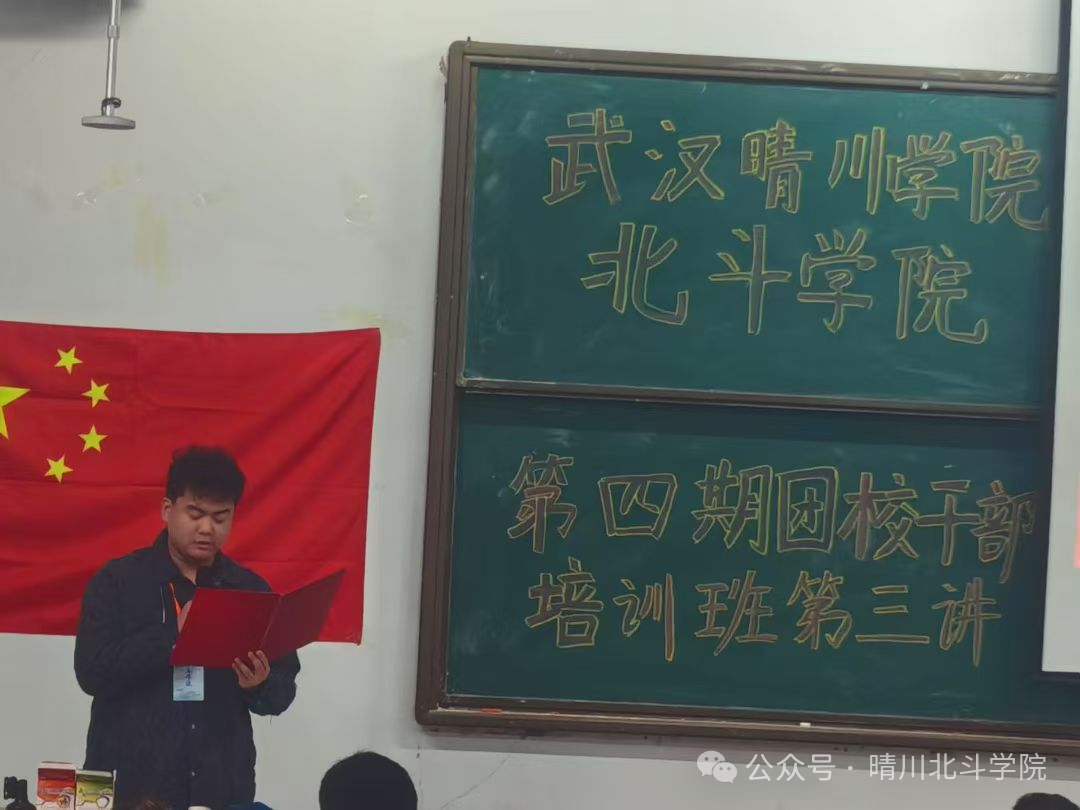 武汉晴川学院
北斗学院
第四期团校干部
培训班第三讲
公众号 · 晴川北斗学院